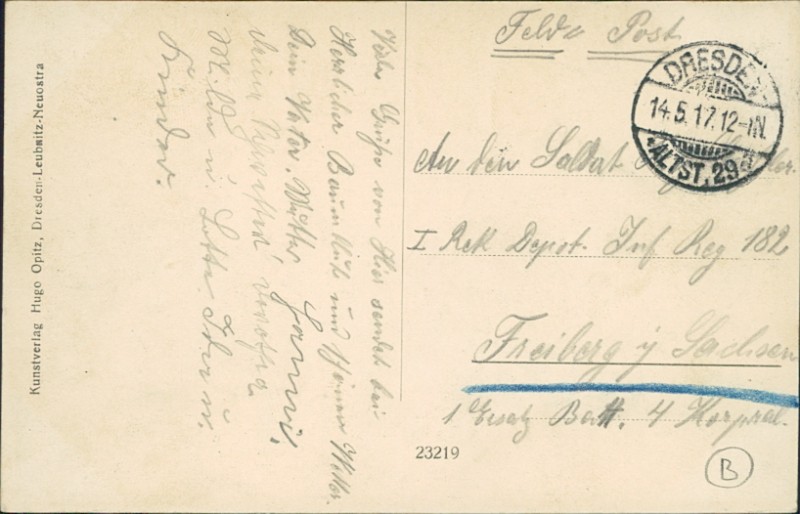 Feld Post
DRESDEN
14.5.17.12-1N.
ALTST. 29
An den Soldat
I Rek Depot. Inf Reg 182
Freiberg i Sachsen
1 Ersatz Batt. 4 Korpral.
23219
B
Viele Grüße von Hier sendet bei
Herrlicher Baumblüt und schönen Wetter
Dein Vater, Mutter
deine Schwester
Milda u. Lotte u.
Kinder.
Kunstverlag Hugo Opitz, Dresden-Leubnitz-Neuostra